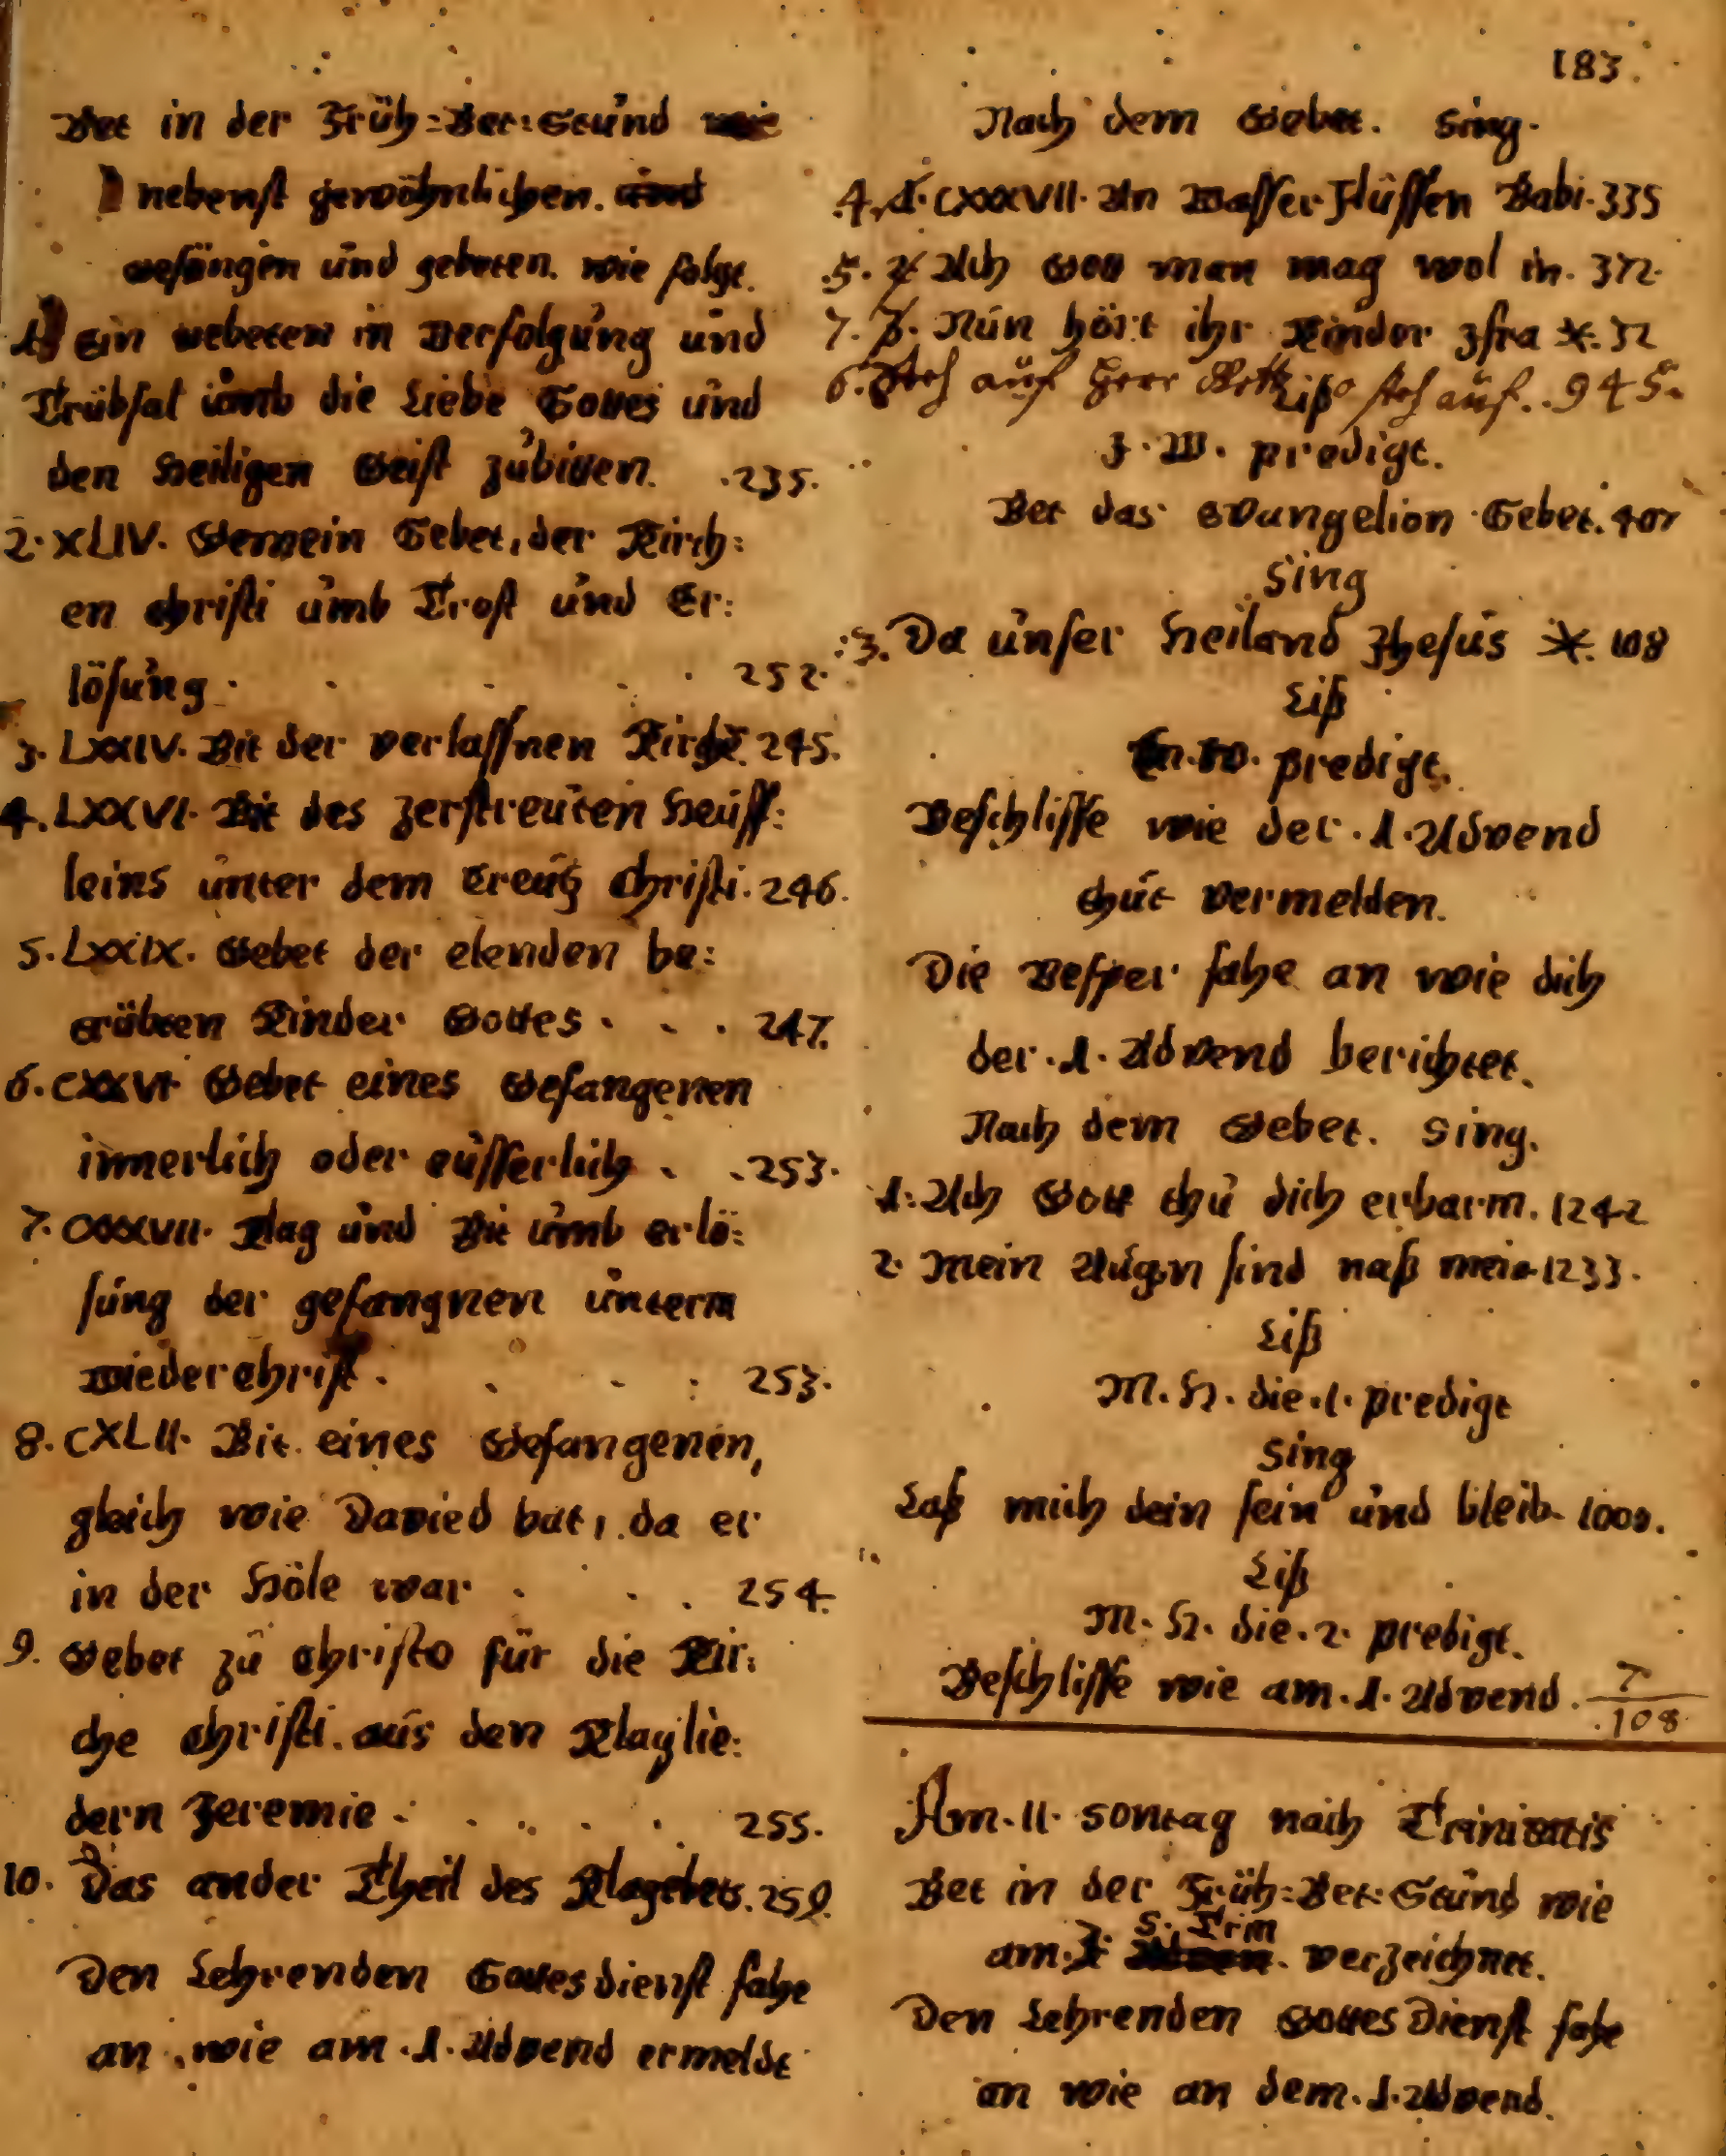 Bet in der Früh=Bet=Stund
nebenst gewöhnlichen.
gesängen und gebeten. wie folgt.
1 Ein Gebeten in Verfolgung und
Trübsal umb die Liebe Gottes und
den Heiligen Geist zubitten. .235.
2. XLIV. Gemein Gebet, der Kirch=
en Christi umb Trost und Er=
lösung. . . . . 252.
3. LXXIV. Bit der verlassnen Kirche. 245.
4. LXXVI. Bit des zerstreuten Heuff=
leins unter dem Creutz Christi. 246.
5. LXXIX. Gebet der elenden be=
trübten Kinder Gottes. . . . 247.
6. CXXVI Gebet eines Gefangenen
innerlich oder eusserlich . . 253.
7. CXXXVII. Klag und Bit umb erlö=
sung der gefangnen unterm
Wiederchrist. . . : 253.
8. CXLII. Bit. eines Gefangenen,
gleich wie David bat, da er
in der Höle war . . . 254.
9. Gebet zu Christo für die Kir=
che Christi. aus den Klaglie=
dern Jeremie . . . . . 255.
10. Das ander Theil des Klagebets. 259.
Den Lehrenden Gottesdienst fahe
an, wie am .1. Advend ermeldt
183.
Nach dem Gebet. Sing.
4. CXXXVII. An Wasser Flüssen Babi. 335
5. Ach Gott man mag wol in. 372.
7. Nun hört ihr Kinder Isra *. 32
6. Steh auf Herr Gott steh auf. . 945.
Liß
J. W. predigt.
Bet das Evangelion Gebet. 407
Sing
:3. Da unser Heiland Jhesus *. 108
Liß
W. predigt.
Beschlisse wie der .1. Advend
thut vermelden.
Die Vesper fahe an wie dich
der .1. Advend berichtet.
Nach dem Gebet. Sing.
1. Ach Gott thu dich erbarm. 1242
2. Mein Augen sind naß mein 1233.
Liß
M. H. die .1. predigt
Sing
Laß mich dein sein und bleib. 1000.
Liß
M. H. die .2. predigt.
Beschlisse wie am .1. Advend. 7
108
Am .11. Sontag nach Trinitatis
Bet in der Früh=Bet=Stund wie
S. Trin
am verzeichnet.
Den Lehrenden Gottes Dienst fahe
an wie an dem .1. Advend.